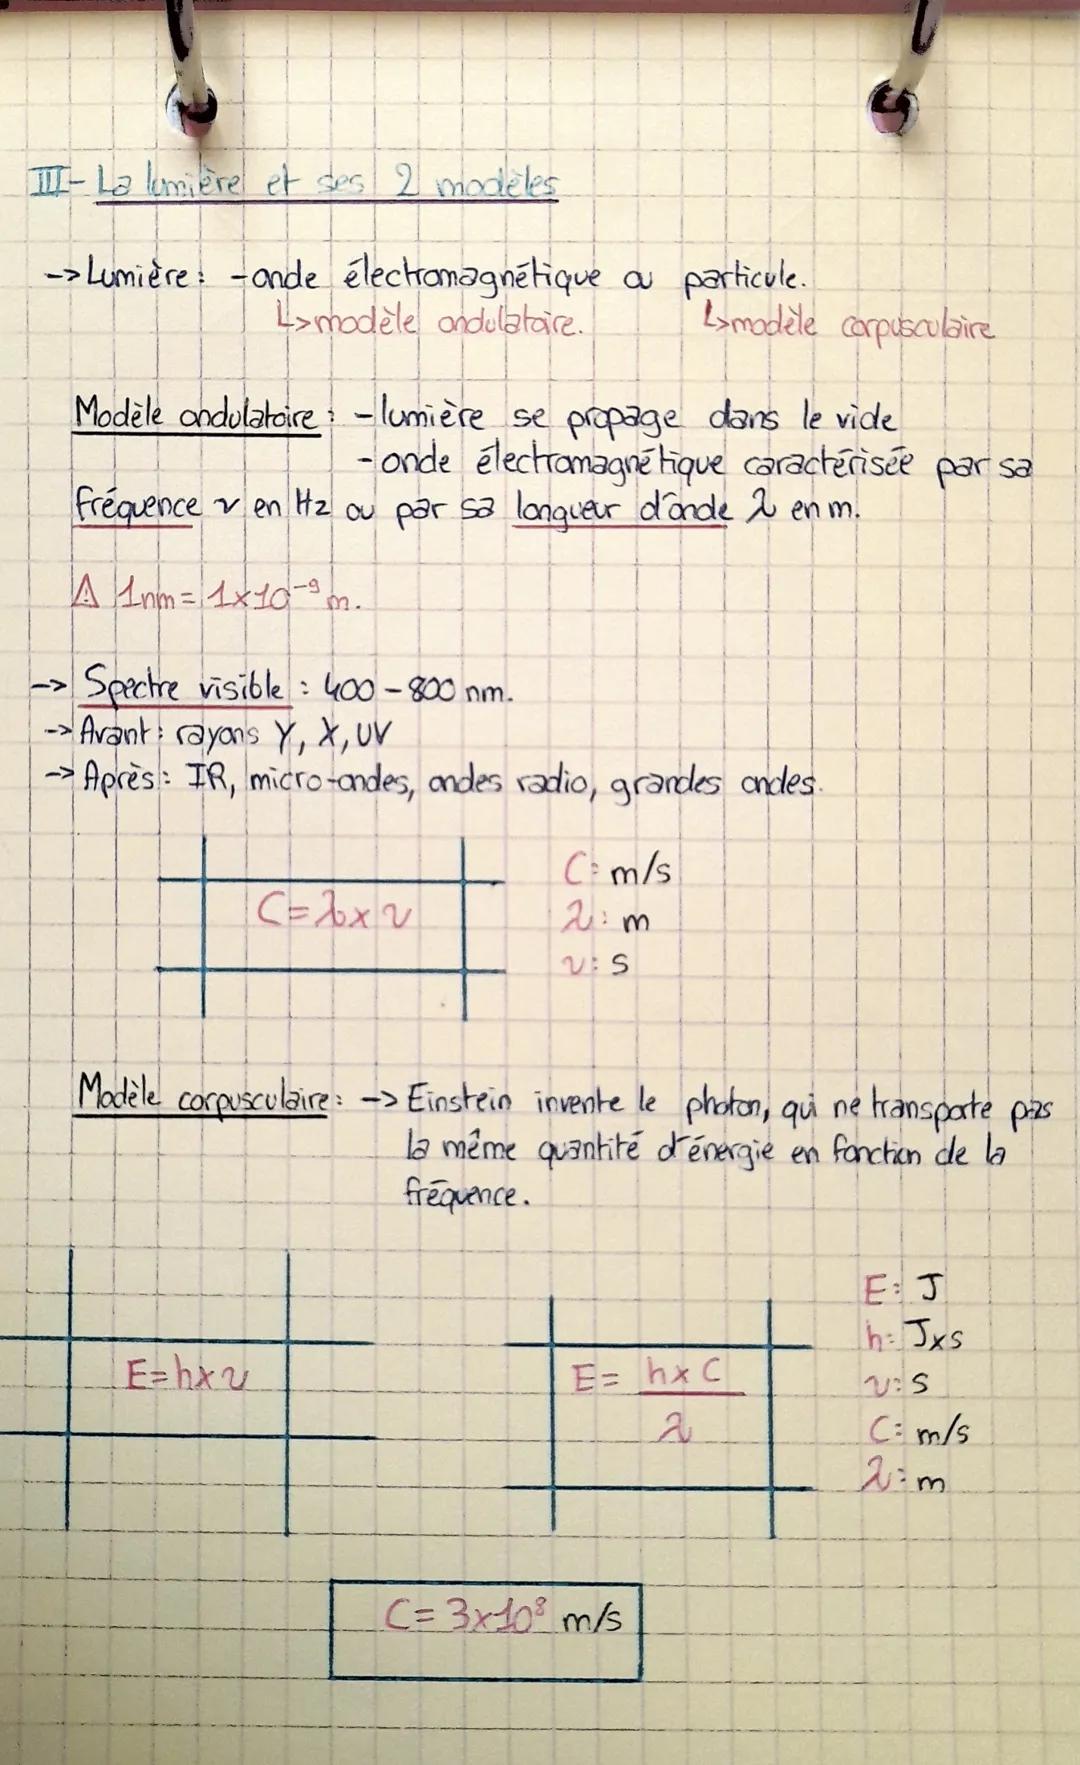 III- La lumière et ses 2 modèles
-> Lumière : - onde électromagnétique ou particule.
↳> modèle ondulatoire. ↳> modèle corpusculaire
Modèle ondulatoire : - lumière se propage dans le vide
- onde électromagnétique caractérisée par sa
fréquence ν en Hz ou par sa longueur d'onde λ en m.
⚠ 1nm = 1x10⁻⁹ m.
-> Spectre visible : 400 - 800 nm.
-> Avant : rayons γ, X, UV
-> Après : IR, micro-ondes, ondes radio, grandes ondes.
C = λ x ν
C : m/s
λ : m
ν : s
Modèle corpusculaire : -> Einstein invente le photon, qui ne transporte pas
la même quantité d'énergie en fonction de la
fréquence.
E = h x ν
E = h x C / λ
E : J
h : J x s
ν : s
C : m/s
λ : m
C = 3x10⁸ m/s